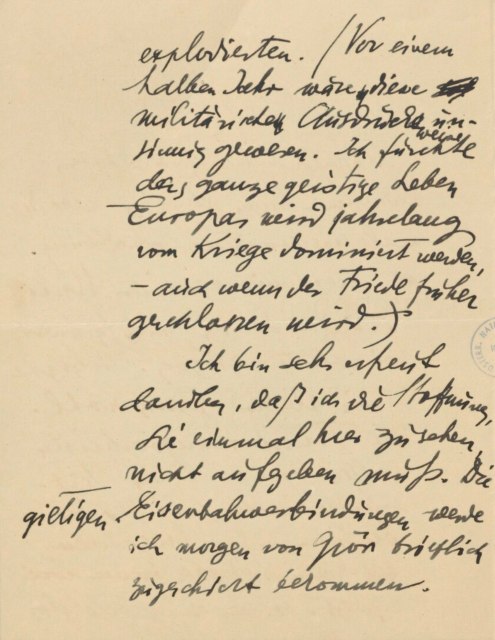 explodierten. (Vor einem
halben Jahr wäre diese
militärische Ausdrucksweise un-
sinnig gewesen. Ich fürchte
das ganze geistige Leben
Europas wird jahrelang
vom Kriege dominiert werden,
– auch wenn der Friede früher
geschlossen wird.)
Ich bin sehr erfreut
darüber, daß ich die Hoffnung,
Sie einmal hier zu sehen,
nicht aufgeben muß. Die
giltigen Eisenbahnverbindungen werde
ich morgen von Győr brieflich
zugeschickt bekommen.